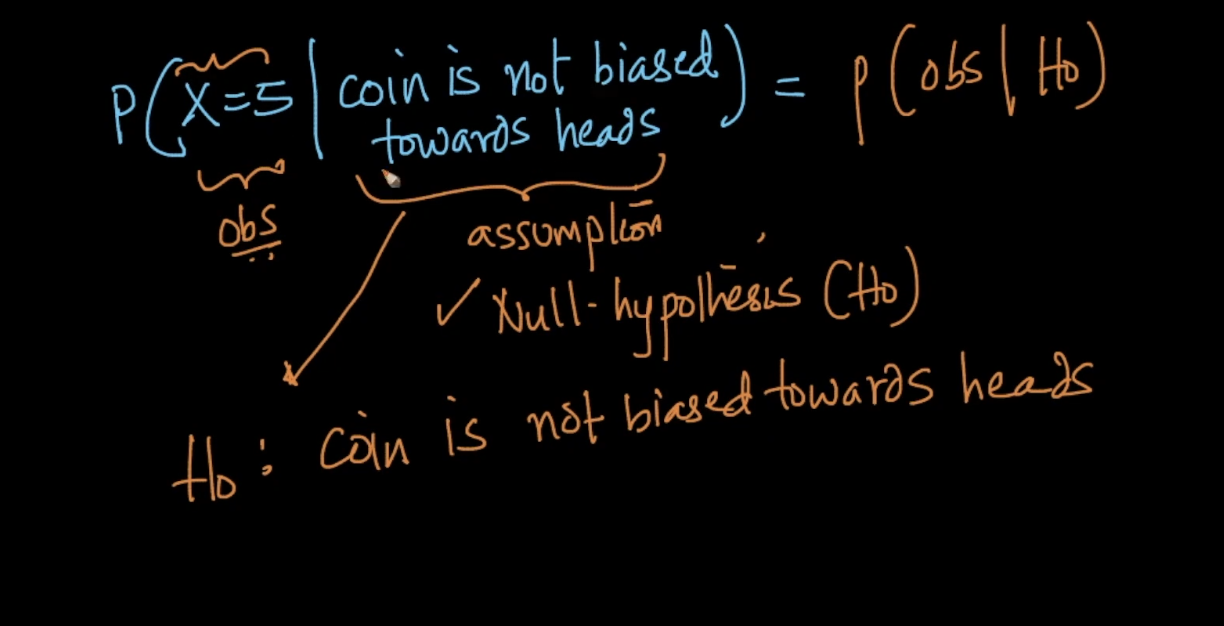 P(X=5 | coin is not biased towards heads) = P(obs | Ho)
obs
assumption
✓ Null-hypothesis (Ho)
Ho: coin is not biased towards heads